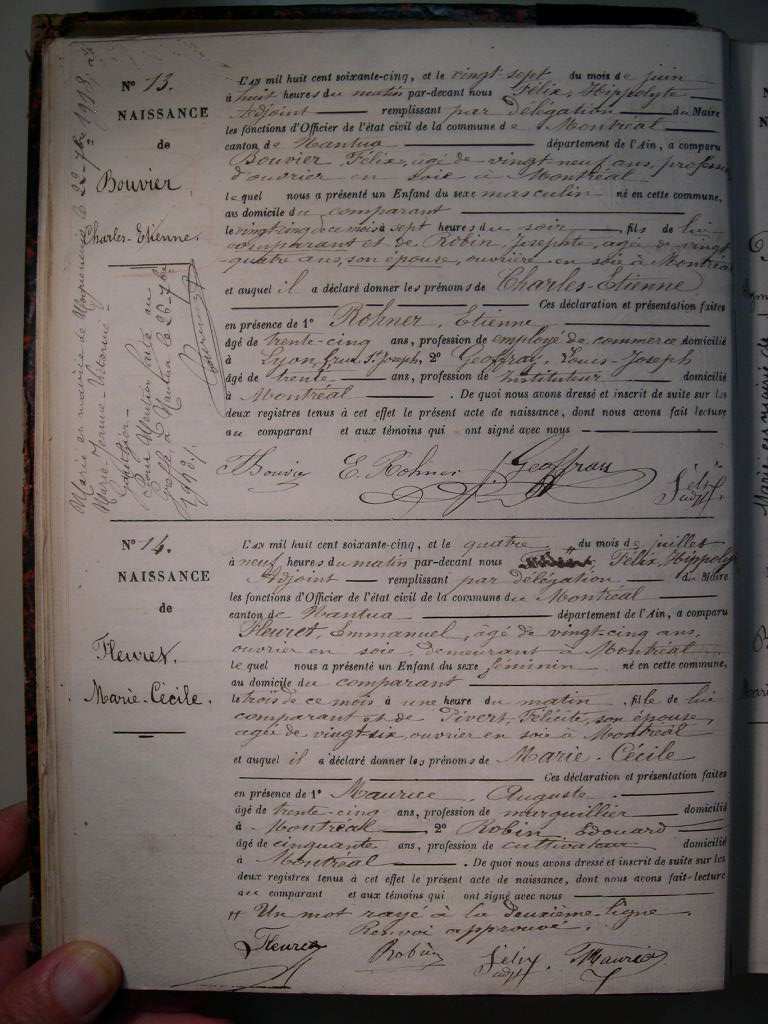 N° 13.
NAISSANCE
de
Bouvier
Charles-Etienne.
L'AN mil huit cent soixante-cinq, et le vingt-sept du mois de juin
à huit heures du matin par-devant nous Félix, Hippolyte
Adjoint remplissant par délégation du Maire
les fonctions d'Officier de l'état civil de la commune de Montréal
canton de Nantua département de l'Ain, a comparu
Bouvier Félix, agé de vingt neuf ans, profession
d'ouvrier en soie à Montréal
lequel nous a présenté un Enfant du sexe masculin né en cette commune,
au domicile du comparant
le vingt cinq de ce mois à sept heures du soir, fils de lui
comparant et de Robin, Josephte, agée de vingt
-quatre ans, son épouse, ouvrière en soie à Montréal
et auquel il a déclaré donner les prénoms de Charles-Etienne
Ces déclaration et présentation faites
en présence de 1° Rohner, Etienne,
âgé de trente-cinq ans, profession de employé de commerce domicilié
à Lyon, rue St Joseph, 2° Geoffray, Louis-Joseph
âgé de trente ans, profession de Instituteur domicilié
à Montréal. De quoi nous avons dressé et inscrit de suite sur les
deux registres tenus à cet effet le présent acte de naissance, dont nous avons fait lecture
au comparant et aux témoins qui ont signé avec nous
Bouvier E. Rohner J. Geoffray Félix adjt
Marié en mairie de
le 22 7bre 1918, à
Marie Jeanne-Victorine
Pour Mention faite au
greffe, à Nantua le 26-7bre
N° 14.
NAISSANCE
de
Fleuret.
Marie-Cécile.
L'AN mil huit cent soixante-cinq, et le quatre du mois de juillet
à neuf heures du matin par-devant nous Félix, Hippolyte
Adjoint remplissant par délégation du Maire
les fonctions d'Officier de l'état civil de la commune de Montréal
canton de Nantua département de l'Ain, a comparu
Fleuret, Emmanuel, âgé de vingt-cinq ans,
ouvrier en soie, demeurant à Montréal
lequel nous a présenté un Enfant du sexe féminin né en cette commune,
au domicile du comparant
le trois de ce mois à une heure du matin, fille de lui
comparant et de Divert, Félicité, son épouse,
agée de vingt six, ouvrier en soie à Montréal
et auquel il a déclaré donner les prénoms de Marie-Cécile
Ces déclaration et présentation faites
en présence de 1° Maurice, Auguste
âgé de trente-cinq ans, profession de marguillier domicilié
à Montréal, 2° Robin, Edouard
âgé de cinquante ans, profession de cultivateur domicilié
à Montréal. De quoi nous avons dressé et inscrit de suite sur les
deux registres tenus à cet effet le présent acte de naissance, dont nous avons fait lecture
au comparant et aux témoins qui ont signé avec nous
Un mot rayé à la deuxième ligne.
Renvoi approuvé.
Fleuret Robin Félix adjt Maurice